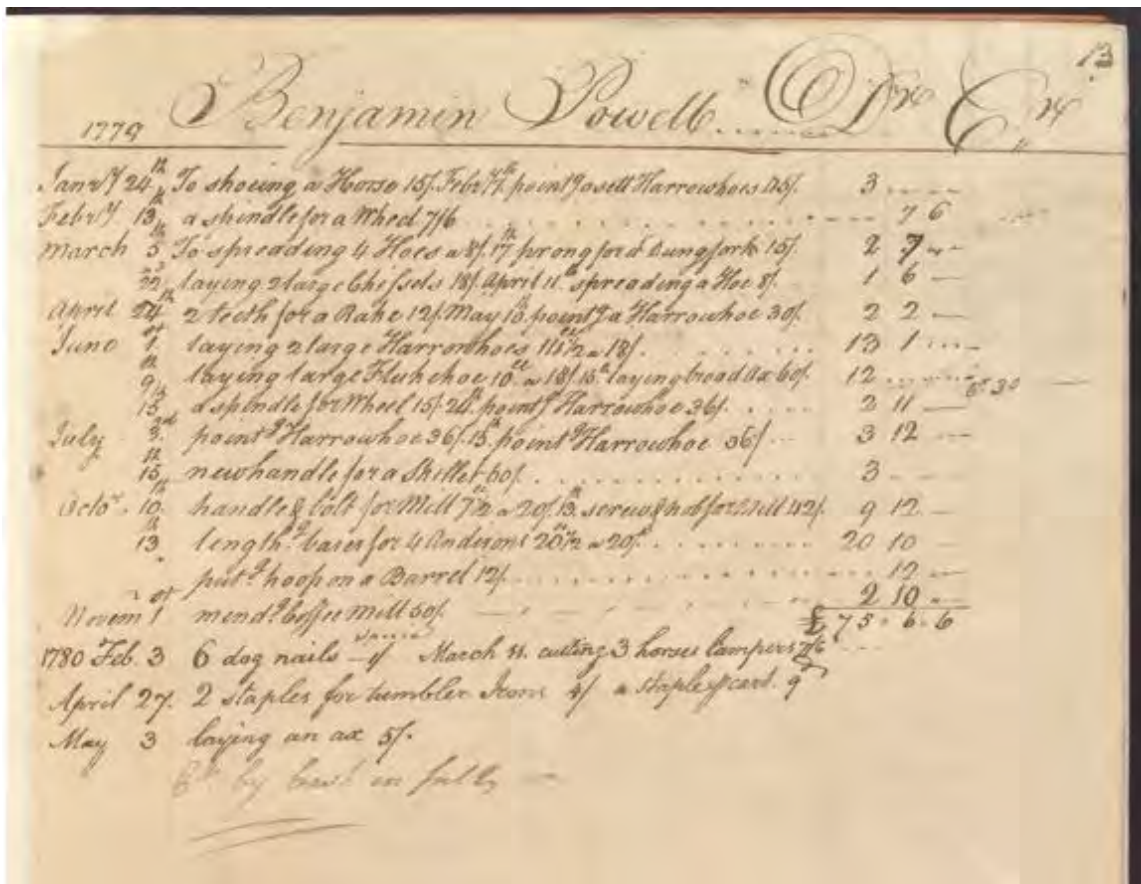 13
1779 Benjamin Powell Dr Cr
Janry 24th To shoeing a Horse 15/. Febry 7th pointg a sett Harrowhoes 45/. 3
Febry 13th a spindle for a Wheel 7/6 7 6
March 5th To spreading 4 Hoes a 8/. 17th prong for a Dungfork 15/. 2 7
22d laying 2 large Chissels 18/. April 11th spreading a Hoe 8/. 1 6
April 24th 2 teeth for a Rake 12/. May 10th pointg a Harrowhoe 30/. 2 2
June 1st laying 2 large Harrowhoes 14 1/2 a 18/. 13 1
9th laying large Flukehoe 10 a 18/. 15th laying broad Ax 60/. 12
15th a spindle for Wheel 15/. 24th pointg Harrowhoe 36/. 2 11
July 3d pointg Harrowhoe 36/. 15th pointg Harrowhoe 36/. 3 12
15th new handle for a Skillet 60/. 3
Octor 10th handle & bolt for Mill 7 1/2 a 20/. 13th screw & nob for Mill 42/. 9 12
13th lengthg bases for 4 Andirons 20 1/2 a 20/. 20 10
putg hoop on a Barrel 12/. 12
Novem 1st mendg Coffee Mill 50/. 2 10
£ 75 . 6 . 6
1780 Feb. 3 6 dog nails March 11. cutting 3 horses lampers 7/6
April 27. 2 staples for tumbler Irons 4/ a staple cart. 9d
May 3 laying an ax 5/.
by Cash in full